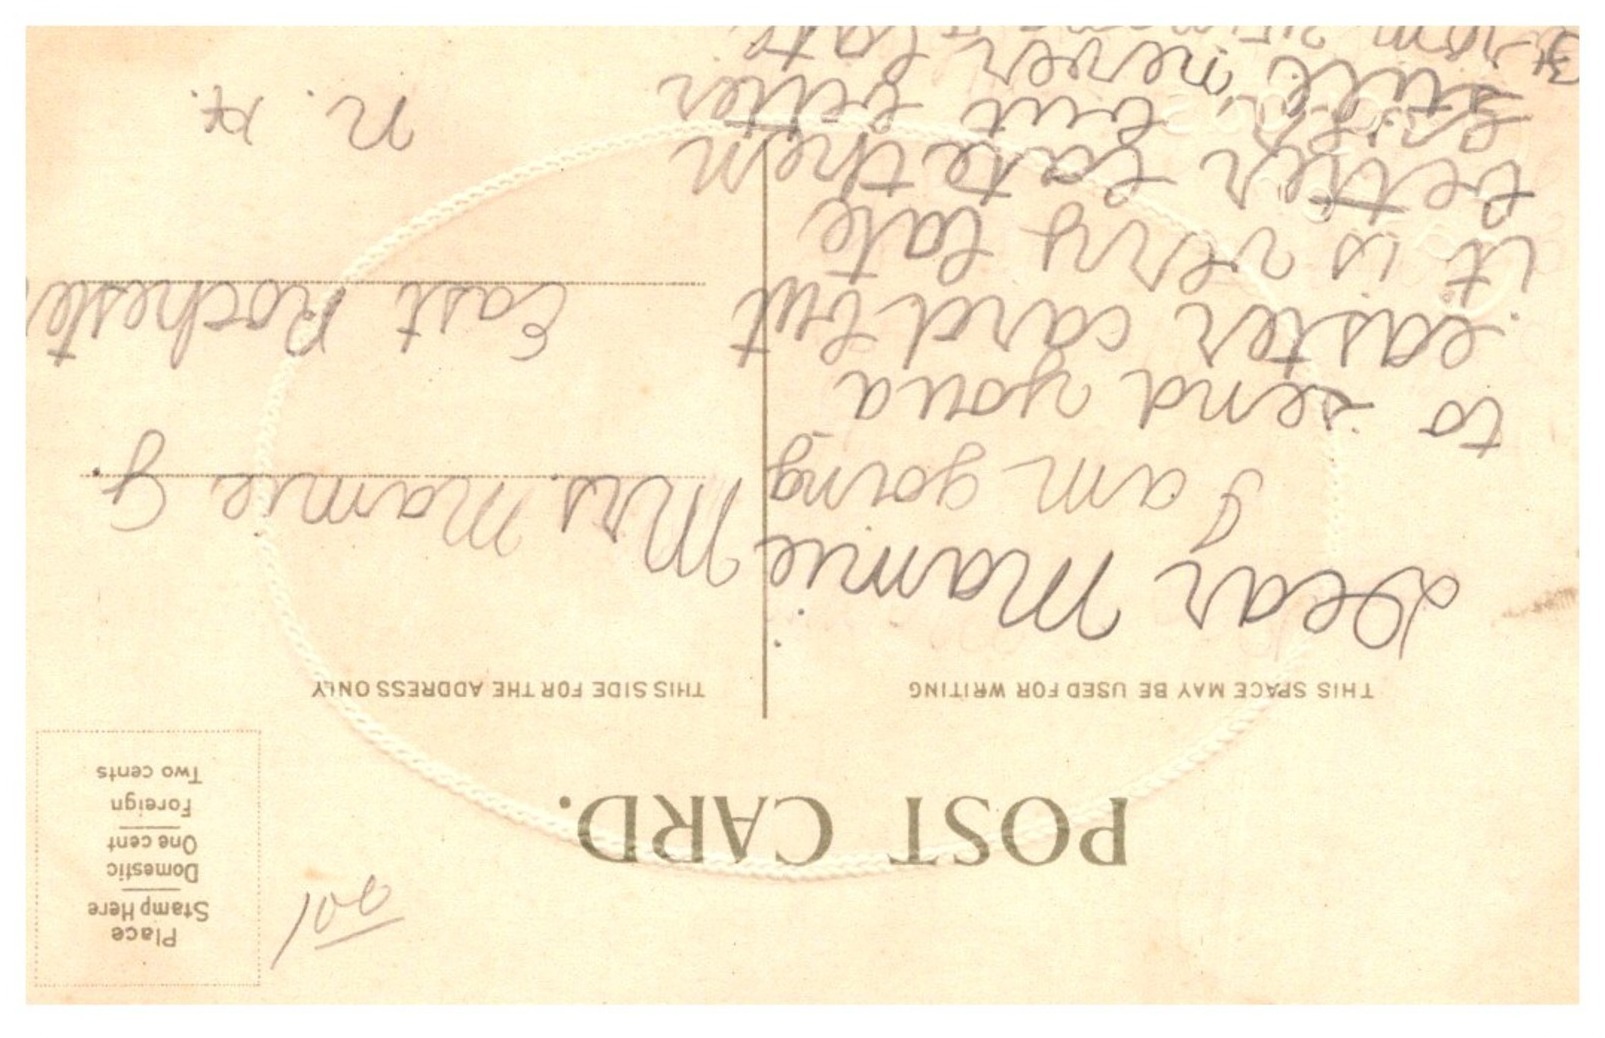 POST CARD.
Place
Stamp Here
Domestic
One cent
Foreign
Two cents
THIS SPACE MAY BE USED FOR WRITING
Dear Mamie
I am going
to send you a
easter card but
it is very late
better late then
but better
still never late
from
THIS SIDE FOR THE ADDRESS ONLY
Mrs. Mamie G.
East Rocheste
N. H.